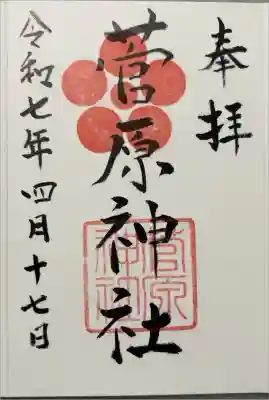 奉拝
菅原神社
菅原
神社
令和七年四月十七日